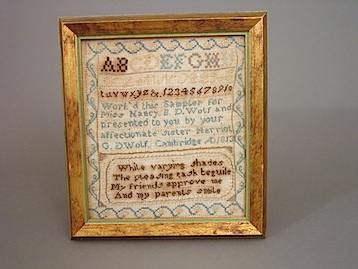 AB EFGH
tuvwxyz&,12345678910
Work'd this Sampler for
Miss Nancy. B. D. Wolf and
presented to you by your
affectionate sister Harriot
G. D. Wolf. Cambridge 1813
While varying shades
The pleasing task beguile
My friends approve me
And my parents smile